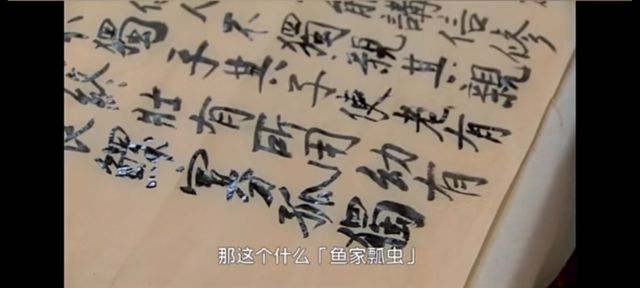 能講信修
人不獨親其親
獨子其子使老有
終壯有所用幼有
長鰥寡孤獨
那这个什么「鱼家瓢虫」